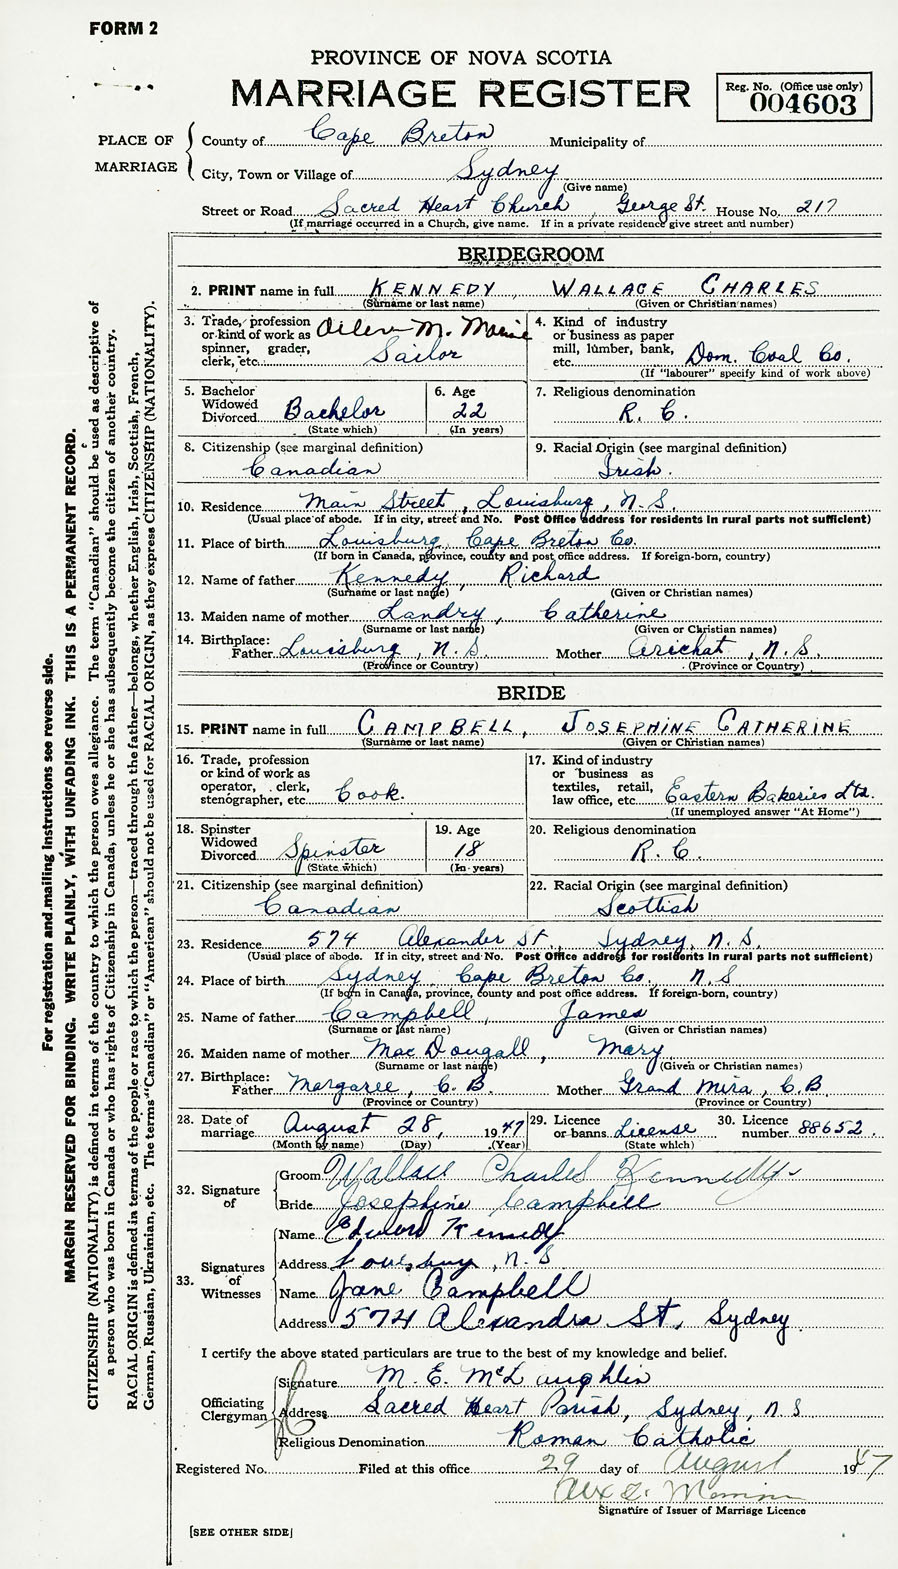 FORM 2
PROVINCE OF NOVA SCOTIA
MARRIAGE REGISTER
Reg. No. (Office use only)
004603
PLACE OF MARRIAGE
County of Cape Breton Municipality of
City, Town or Village of Sydney
(Give name)
Street or Road Sacred Heart Church, George St. House No. 217
(If marriage occurred in a Church, give name. If in a private residence give street and number)
BRIDEGROOM
2. PRINT name in full KENNEDY, WALLACE CHARLES
(Surname or last name) (Given or Christian names)
3. Trade, profession or kind of work as spinner, grader, clerk, etc. M. Marine Sailor
4. Kind of industry or business as paper mill, lumber, bank, etc. Dom. Coal Co.
(If "labourer" specify kind of work above)
5. Bachelor Widowed Divorced Bachelor (State which)
6. Age 22 (In years)
7. Religious denomination R. C.
8. Citizenship (see marginal definition) Canadian
9. Racial Origin (see marginal definition) Irish.
10. Residence Main Street, Louisburg, N.S.
(Usual place of abode. If in city, street and No. Post Office address for residents in rural parts not sufficient)
11. Place of birth Louisburg, Cape Breton Co.
(If born in Canada, province, county and post office address. If foreign-born, country)
12. Name of father Kennedy, Richard
(Surname or last name) (Given or Christian names)
13. Maiden name of mother Landry, Catherine
(Surname or last name) (Given or Christian names)
14. Birthplace:
Father Louisburg, N.S. Mother Arichat, N.S.
(Province or Country) (Province or Country)
BRIDE
15. PRINT name in full CAMPBELL, JOSEPHINE CATHERINE
(Surname or last name) (Given or Christian names)
16. Trade, profession or kind of work as operator, clerk, stenographer, etc. Cook.
17. Kind of industry or business as textiles, retail, law office, etc. Eastern Bakeries Ltd.
(If unemployed answer "At Home")
18. Spinster Widowed Divorced Spinster (State which)
19. Age 18 (In years)
20. Religious denomination R. C.
21. Citizenship (see marginal definition) Canadian
22. Racial Origin (see marginal definition) Scottish
23. Residence 574 Alexander St., Sydney, N.S.
(Usual place of abode. If in city, street and No. Post Office address for residents in rural parts not sufficient)
24. Place of birth Sydney, Cape Breton Co. N.S
(If born in Canada, province, county and post office address. If foreign-born, country)
25. Name of father Campbell, James
(Surname or last name) (Given or Christian names)
26. Maiden name of mother MacDougall, Mary
(Surname or last name) (Given or Christian names)
27. Birthplace:
Father Margaree, C.B. Mother Grand Mira, C.B
(Province or Country) (Province or Country)
28. Date of marriage August 28, 1947
(Month by name) (Day) (Year)
29. Licence or banns License (State which)
30. Licence number 88652.
32. Signature of
Groom Wallace Charles Kennedy
Bride Josephine Campbell
33. Signatures of Witnesses
Name Edward Kennedy
Address Louisburg, N.S
Name Jane Campbell
Address 574 Alexandra St, Sydney
I certify the above stated particulars are true to the best of my knowledge and belief.
Officiating Clergyman
Signature M. E. McLaughlin
Address Sacred Heart Parish, Sydney, N S
Religious Denomination Roman Catholic
Registered No. Filed at this office 29 day of August 1947
Signature of Issuer of Marriage Licence
[SEE OTHER SIDE]
For registration and mailing instructions see reverse side.
MARGIN RESERVED FOR BINDING. WRITE PLAINLY, WITH UNFADING INK. THIS IS A PERMANENT RECORD.
CITIZENSHIP (NATIONALITY) is defined in terms of the country to which the person owes allegiance. The term "Canadian" should be used as descriptive of
a person who was born in Canada or who has rights of Citizenship in Canada, unless he or she has subsequently become the citizen of another country.
RACIAL ORIGIN is defined in terms of the people or race to which the person—traced through the father—belongs, whether English, Irish, Scottish, French,
German, Russian, Ukrainian, etc. The terms "Canadian" or "American" should not be used for RACIAL ORIGIN, as they express CITIZENSHIP (NATIONALITY).